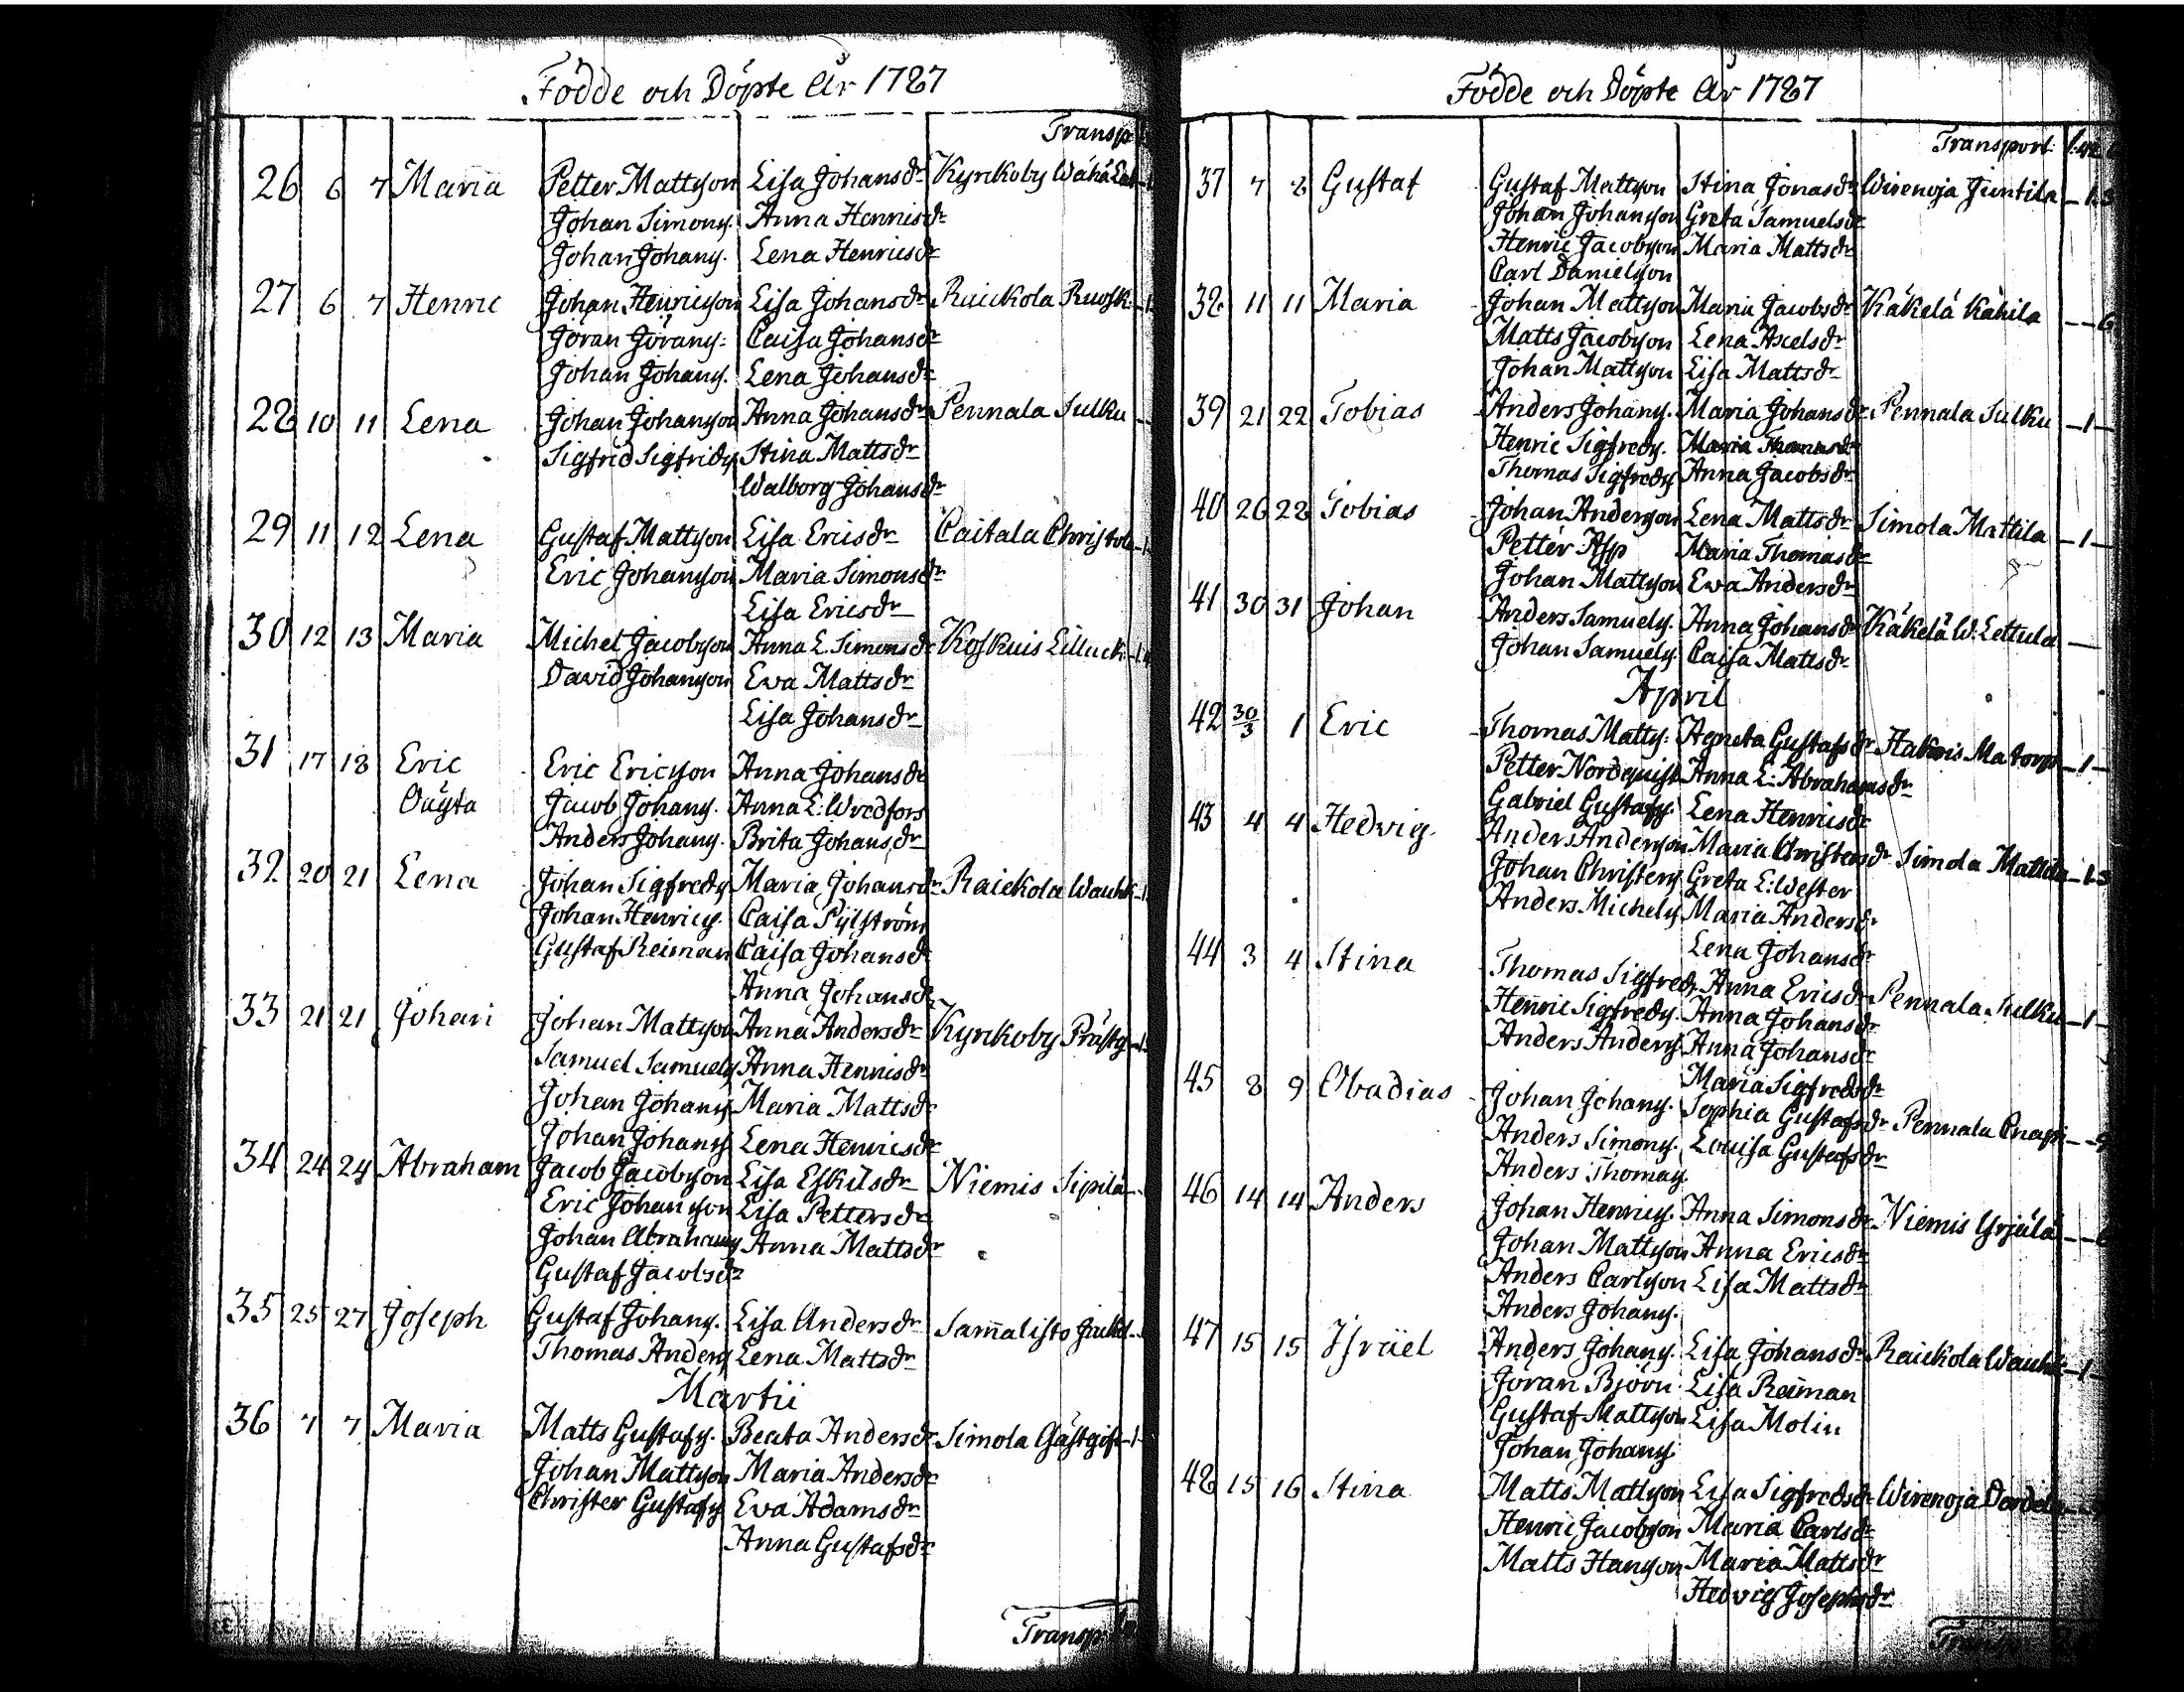 Födde och Döpte År 1787
Transp
26 6 7 Maria Petter Mattsson Lisa Johansdr Kyrckoby Wähä
Johan Simons. Anna Henricsdr
Johan Johans. Lena Henricsdr
27 6 7 Henric Johan Henricsson Lisa Johansdr Raickola Ruosk
Jöran Jörans: Caisa Johansdr
Johan Johans. Lena Johansdr
28 10 11 Lena Johan Johansson Anna Johansdr Pennala Sulku
Sigfrid Sigfrids Stina Mattsdr
Walborg Johansdr
29 11 12 Lena Gustaf Mattsson Lisa Ericsdr Caitala Christola
Eric Johansson Maria Simonsdr
Lisa Ericsdr
30 12 13 Maria Michel Jacobsson Anna L. Simonsdr Koskuis Lilluck
David Johansson Ewa Mattsdr
Lisa Johansdr
31 17 18 Eric Eric Ericsson Anna Johansdr
Oägta Jacob Johans. Anna L: Wredfors
Anders Johans. Brita Johansdr
32 20 21 Lena Johan Sigfreds Maria Johansdr Raickola Wauhk
Johan Henrics. Caisa Pylström
Gustaf Reiman Caisa Johansdr
Anna Johansdr
33 21 21 Johan Johan Mattsson Anna Andersdr Kyrckoby Prästg
Samuel Samuels Anna Henricsdr
Johan Johans Maria Mattsdr
Johan Johans Lena Henricsdr
34 24 24 Abraham Jacob Jacobsson Lisa Eskilsdr Niemis Sipilä
Eric Johansson Lisa Pettersdr
Johan Abrahams Anna Mattsdr
Gustaf Jacobsdr
35 25 27 Joseph Gustaf Johans. Lisa Andersdr Sam̄alisto
Thomas Anders Lena Mattsdr
Martii
36 7 7 Maria Matts Gustafs. Beata Andersdr Simola Gästgif
Johan Mattsson Maria Andersdr
Christer Gustafs Eva Adamsdr
Anna Gustafsdr
Transp
Födde och Döpte År 1787
Transport
37 7 8 Gustaf Gustaf Mattsson Stina Jonasdr Wirenoja Juntila
Johan Johansson Greta Samuelsdr
Henric Jacobsson Maria Mattsdr
Carl Danielsson
38 11 11 Maria Johan Mattsson Maria Jacobsdr Käkelä Kähilä
Matts Jacobsson Lena Axelsdr
Johan Mattsson Lisa Mattsdr
39 21 22 Tobias Anders Johans. Maria Johansdr Pennala Sulku 1
Henric Sigfreds. Maria Thomasdr
Thomas Sigfreds Anna Jacobsdr
40 26 28 Tobias Johan Andersson Lena Mattsdr Simola Mattila 1
Petter Asp Maria Thomasdr
Johan Mattsson Ewa Andersdr
41 30 31 Johan Anders Samuels. Anna Johansdr Käkelä W: Lettula
Johan Samuels. Caisa Mattsdr
April
42 30/3 1 Eric Thomas Matts: Agneta Gustafsdr Hakois Matorp 1
Petter Nordquist Anna L: Abrahamsdr
Gabriel Gustafs. Lena Henricsdr
43 4 4 Hedvig Anders Andersson Maria Christersdr Simola Mattila
Johan Christers Greta L: Wester
Anders Michels Maria Andersdr
Lena Johansdr
44 3 4 Stina Thomas Sigfreds Anna Ericsdr Pennala Sulku 1
Henric Sigfreds. Anna Johansdr
Anders Anders Anna Johansdr
Maria Sigfredsdr
45 8 9 Obadias Johan Johans. Sophia Gustafsdr Pennala
Anders Simons. Lovisa Gustafsdr
Anders Thomas
46 14 14 Anders Johan Henrics. Anna Simonsdr Niemis Yrjälä
Johan Mattsson Anna Ericsdr
Anders Carlsson Lisa Mattsdr
Anders Johans.
47 15 15 Israel Anders Johans. Lisa Johansdr Raickola Wauhk 1
Jöran Björn Lisa Reiman
Gustaf Mattsson Lisa Molin
Johan Johans
48 15 16 Stina Matts Mattsson Lisa Sigfredsdr Wirenoja
Henric Jacobsson Maria Carlsdr
Matts Hansson Maria Mattsdr
Hedvig Josephsdr